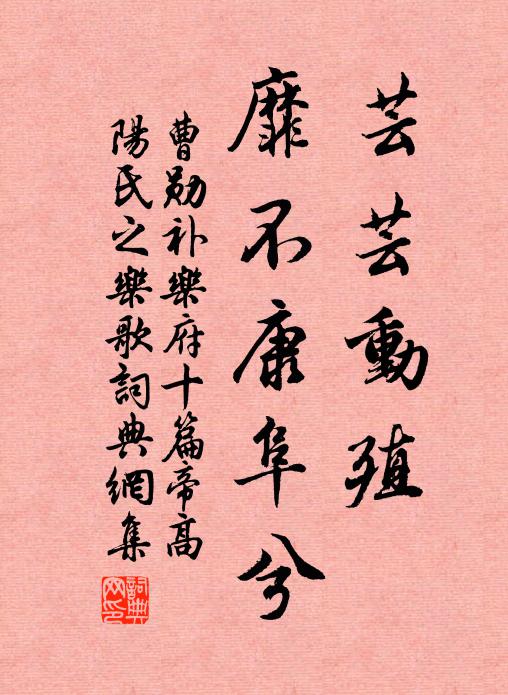 芸芸動殖
靡不康阜兮
曹勛补樂府十篇帝高
陽氏之樂歌詞典網集
詞典网印